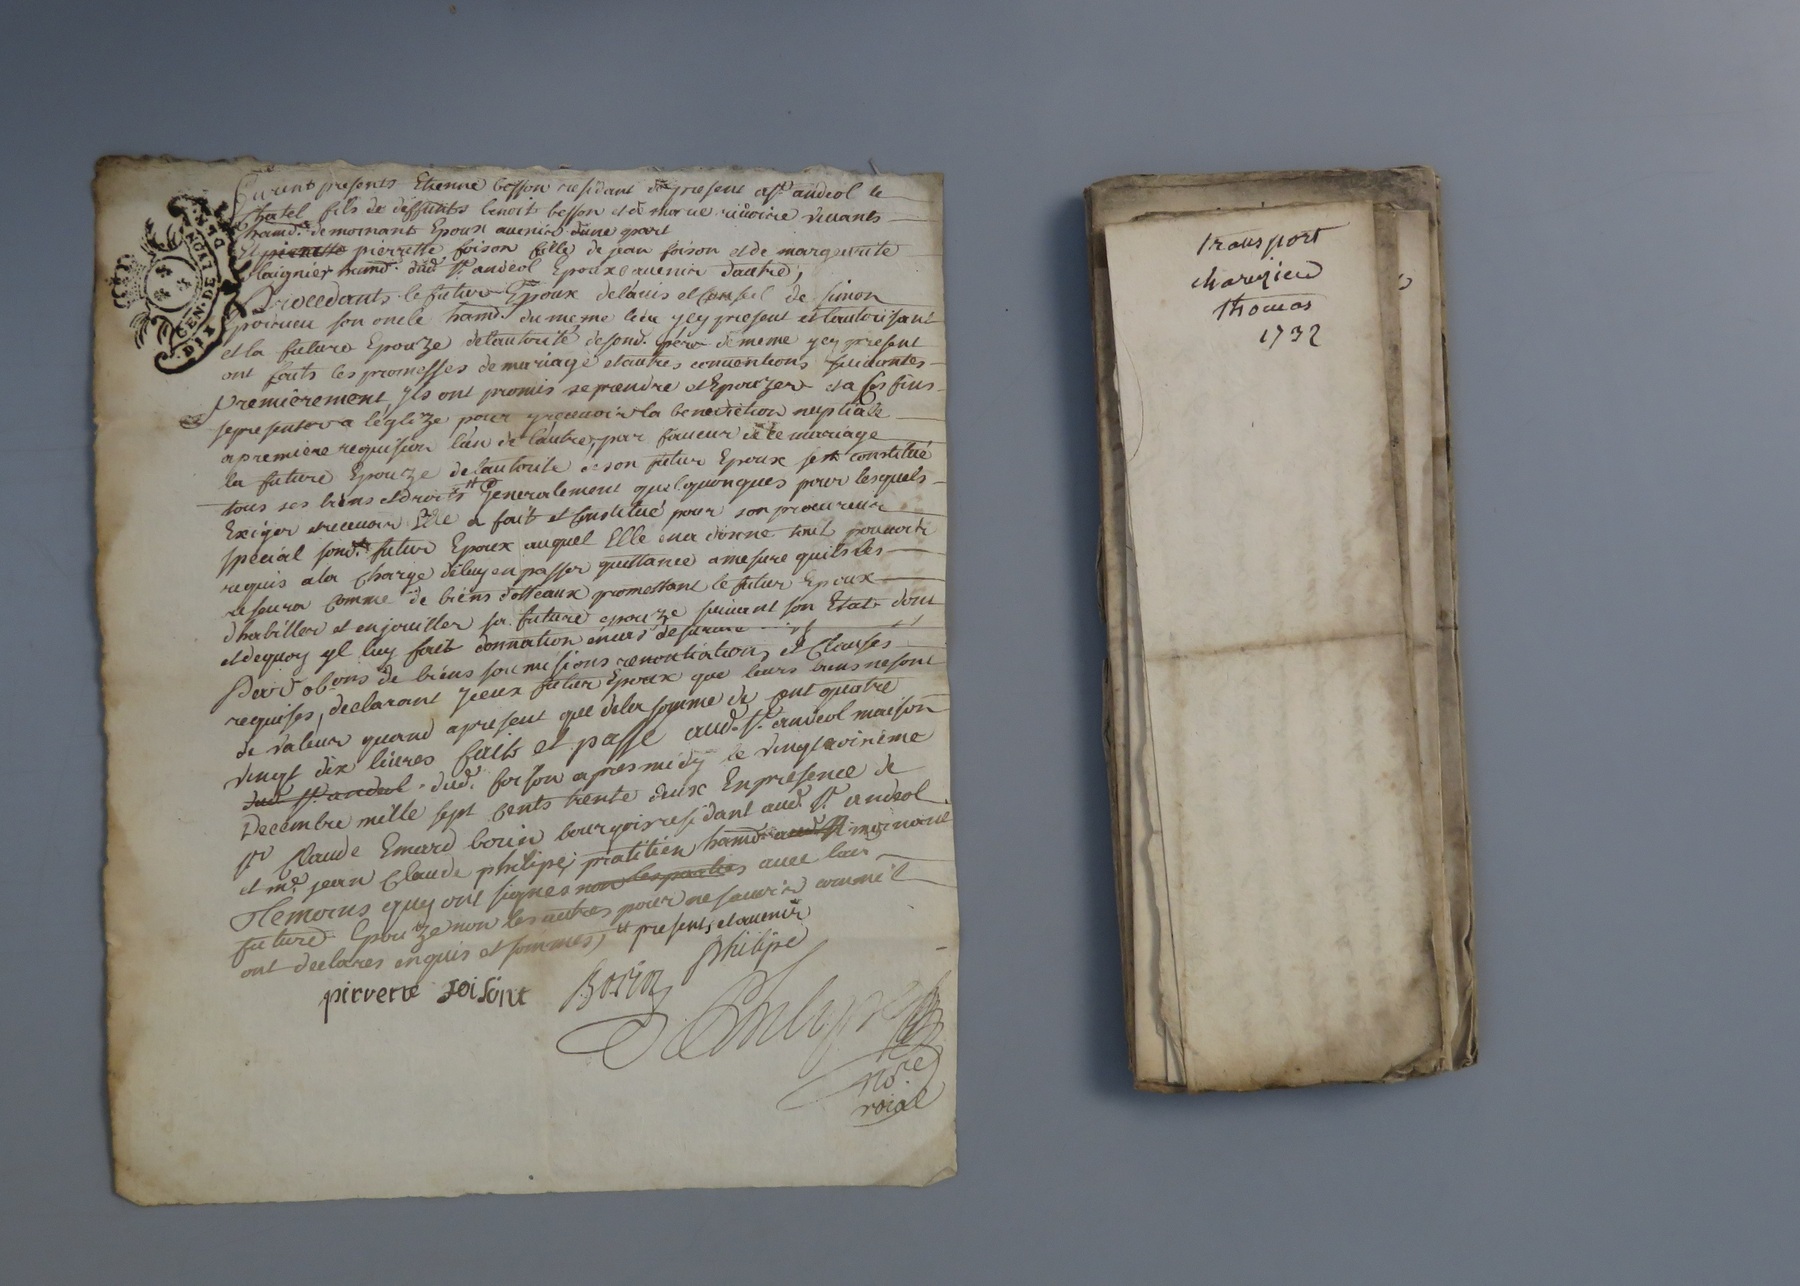 furent presents Etienne besson residant de present a st andeol le
Chatel fils de deffunts benoit besson et de marie rivoire vivants
hand. de mornant Epoux avenir d'une part
Et pierette pierrette foison fille de jean foison et de marguerite
laignier hand. dud. st. andeol Epouxe avenir dautre,
Procedants le futur Epoux delavis et Conseil de simon
poirieu son oncle hand. du meme lieu y cy present et lautorisant
et la future Epouze delautorité desond. père de meme y cy present
ont faits les promesses de mariage et autres conventions suivantes
Premièrement, Jls ont promis se prendre et Epouzer et a Ces fins
se presenter a léglize pour y recevoir la benediction nuptiale
a premiere requision lun de lautre, par faveur de ce mariage
la future Epouze de lautorité de son futur Epoux sest constitué
tous ses biens et droits # Generalement quelquonques pour lesquels
Exiger et recevoir Elle a fait et Constitué pour son procureur
special sond. futur Epoux auquel Elle en a donné tout pouvoir
requis a la Charge de luy en passer quittance a mesure quil les
resevra Comme de biens dotteaux promettant le futur Epoux
dhabiller et enjouiller sa future epouze suivant son Etat dont
et dequoy yl luy fait donnation en cas de survie
Par obons de biens soumisions renontiations et Clauses
requises, declarant yceux futur Epoux que leurs biens ne sont
de valeur quand a present que dela somme de Cent quatre
vingt dix livres faits et passé aud. st. andeol maison
dud. st. andeol dud. foison apres midy le vingt
Decembre mille sept Cents trente deux En presence de
sr Claude Emard borin bourgois residant aud. st. andeol
et me. jean Claude philipe, pratitien hand. aud. st mornant
temoins quy ont signés non les parties avec la
future Epouze non les autres pour ne savoir comme il
ont declarés enquis et sommés, # presents et avenir
pirverte soisont Borin philipe
Philipe
nore.
roial
DE LYON
GEN. DE
DIX
transport
charezieu
thomas
1732